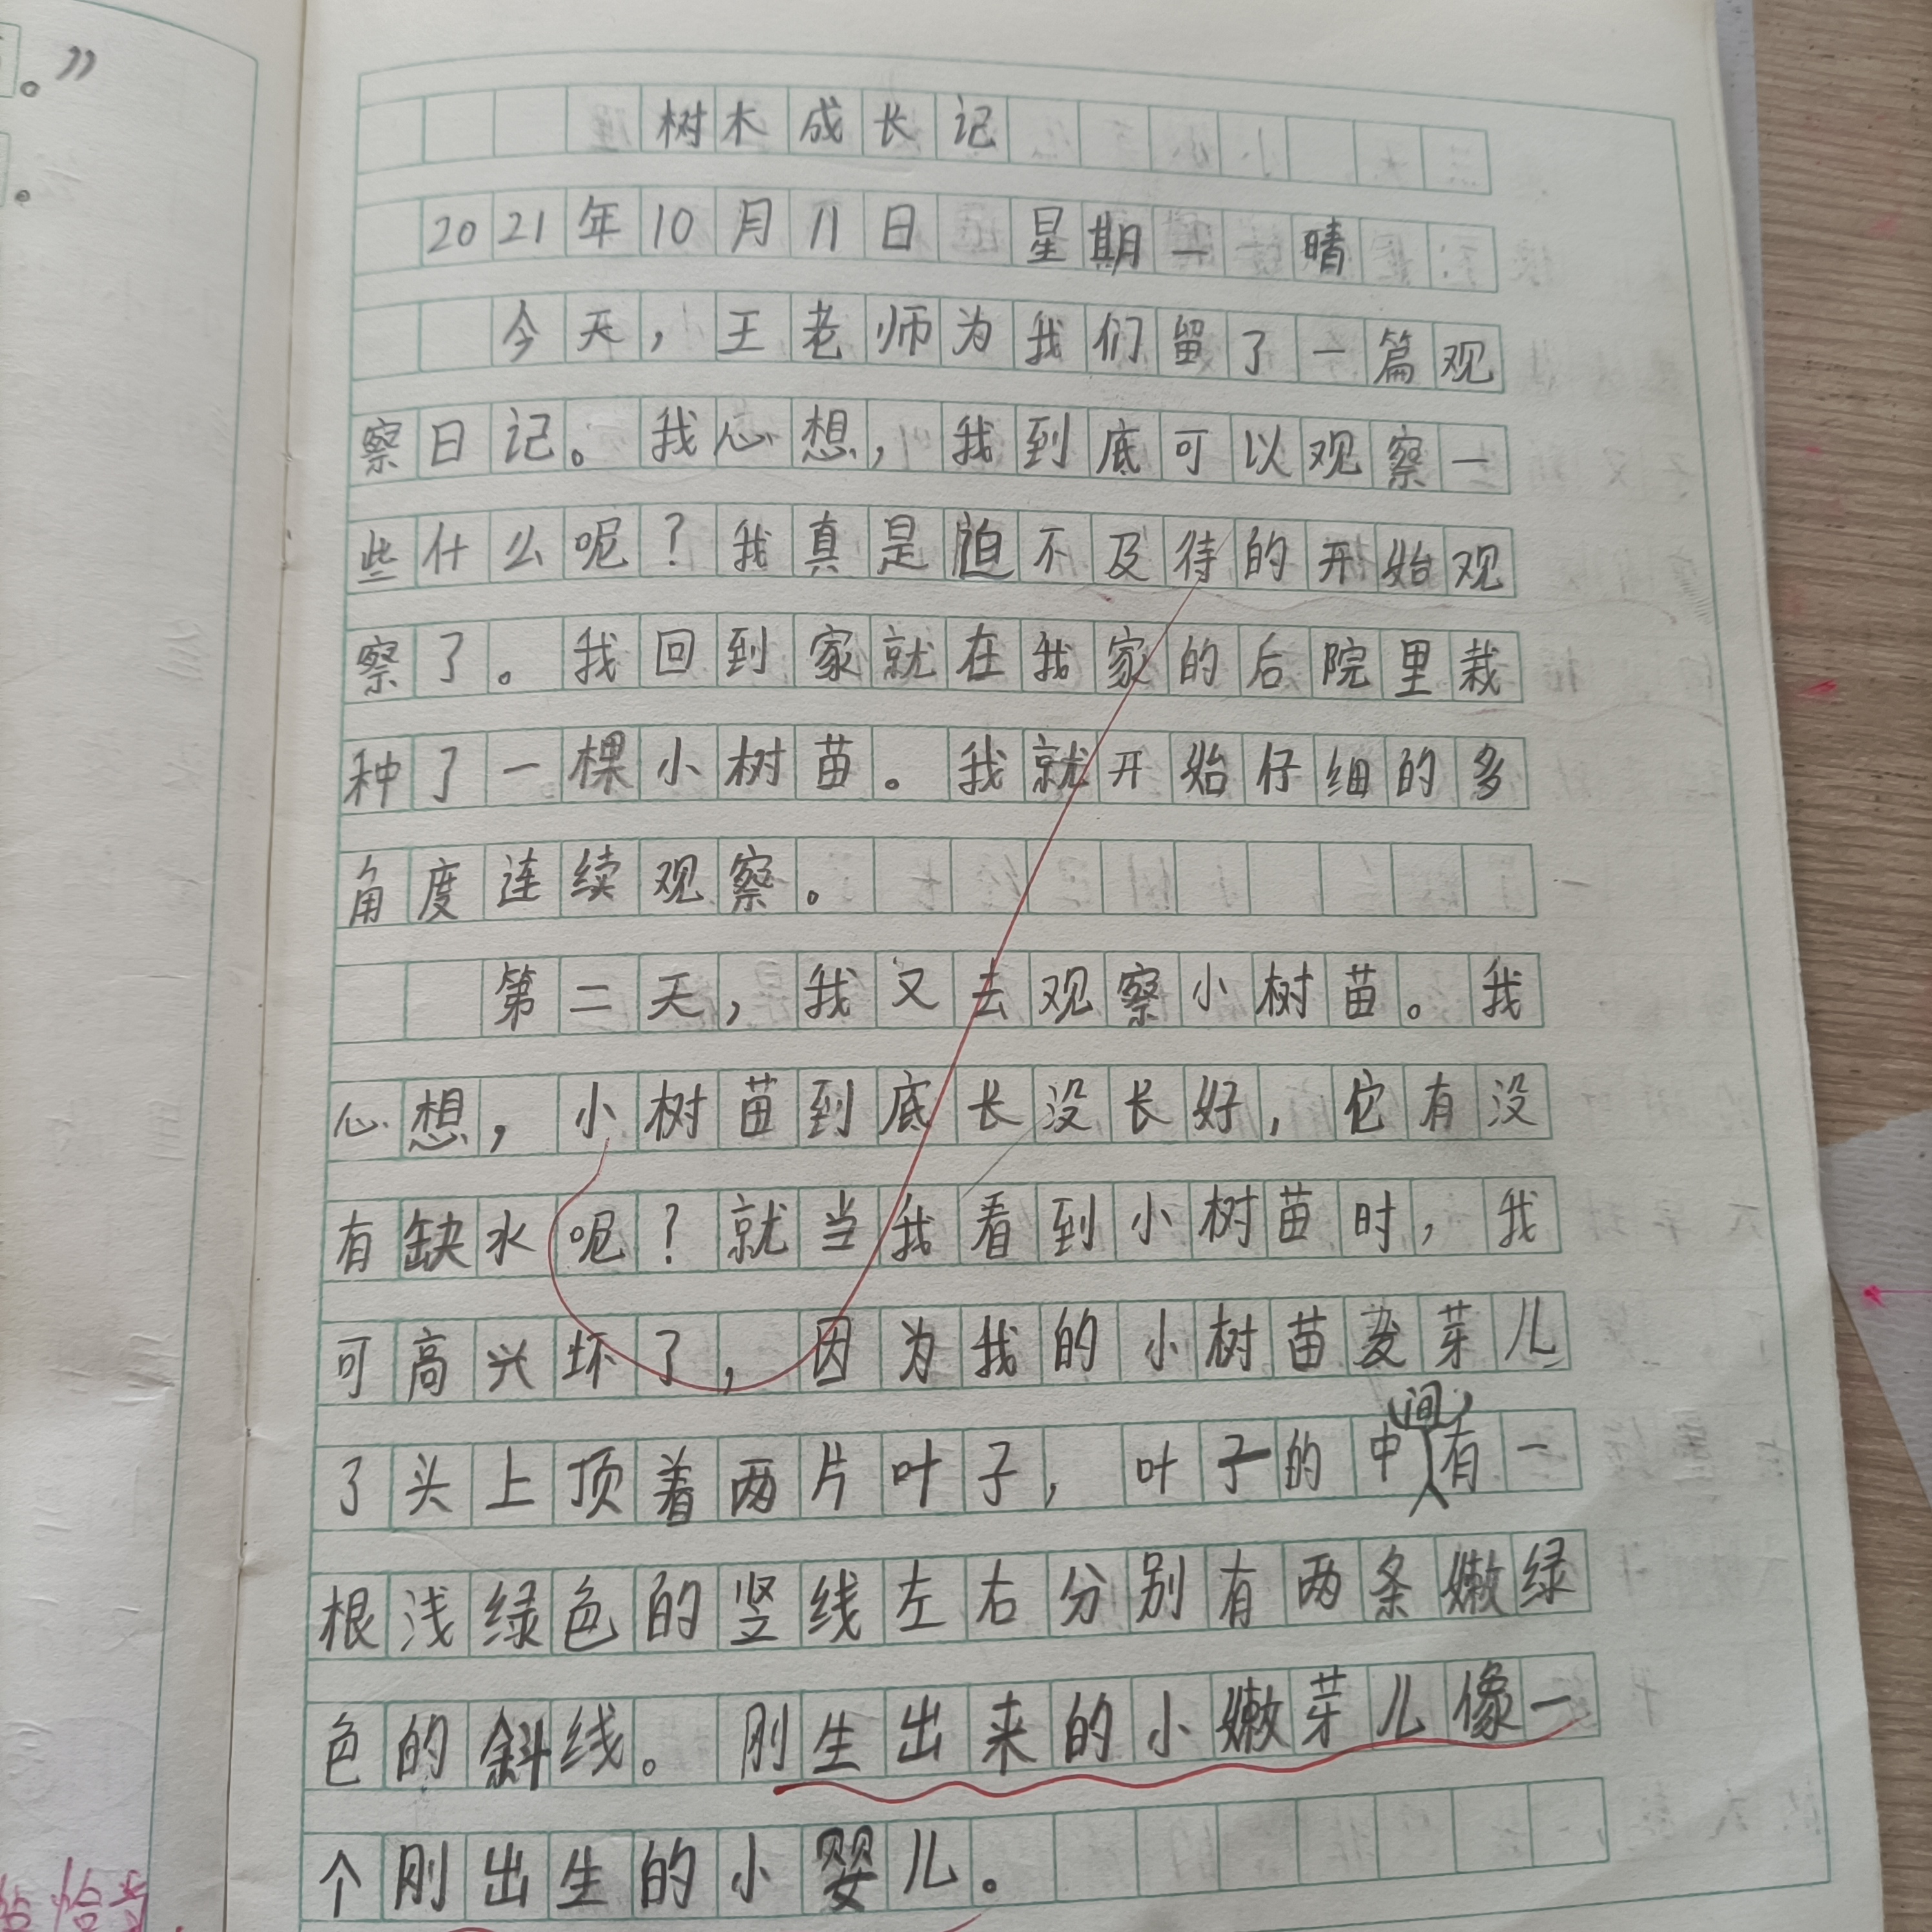 。”
。
树木成长记
2021年10月11日 星期一 晴
今天，王老师为我们留了一篇观
察日记。我心想，我到底可以观察一
些什么呢？我真是迫不及待的开始观
察了。我回到家就在我家的后院里栽
种了一棵小树苗。我就开始仔细的多
角度连续观察。
第二天，我又去观察小树苗。我
心想，小树苗到底长没长好，它有没
有缺水呢？就当我看到小树苗时，我
可高兴坏了，因为我的小树苗发芽儿
了头上顶着两片叶子，叶子的中间有一
根浅绿色的竖线左右分别有两条嫩绿
色的斜线。刚生出来的小嫩芽儿像一
个刚出生的小婴儿。